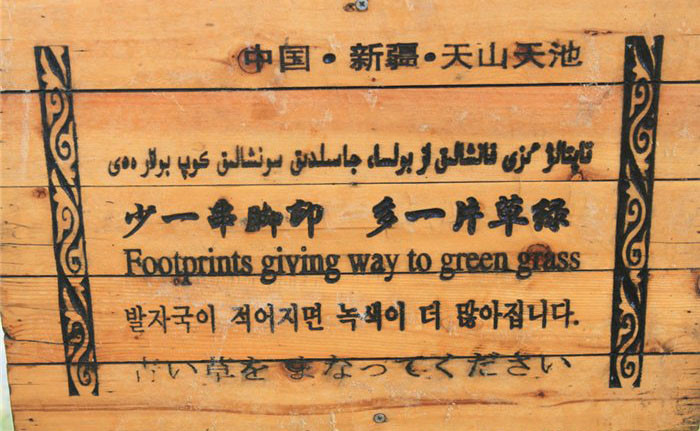 中国·新疆·天山天池
تاپتالۋ ٸزى قانشالىق از بولسا، جاسىلدىق سونشالىق كوپ بولار
少一串脚印 多一片草绿
Footprints giving way to green grass
발자국이 적어지면 녹색이 더 많아집니다.
青い草を まなってください